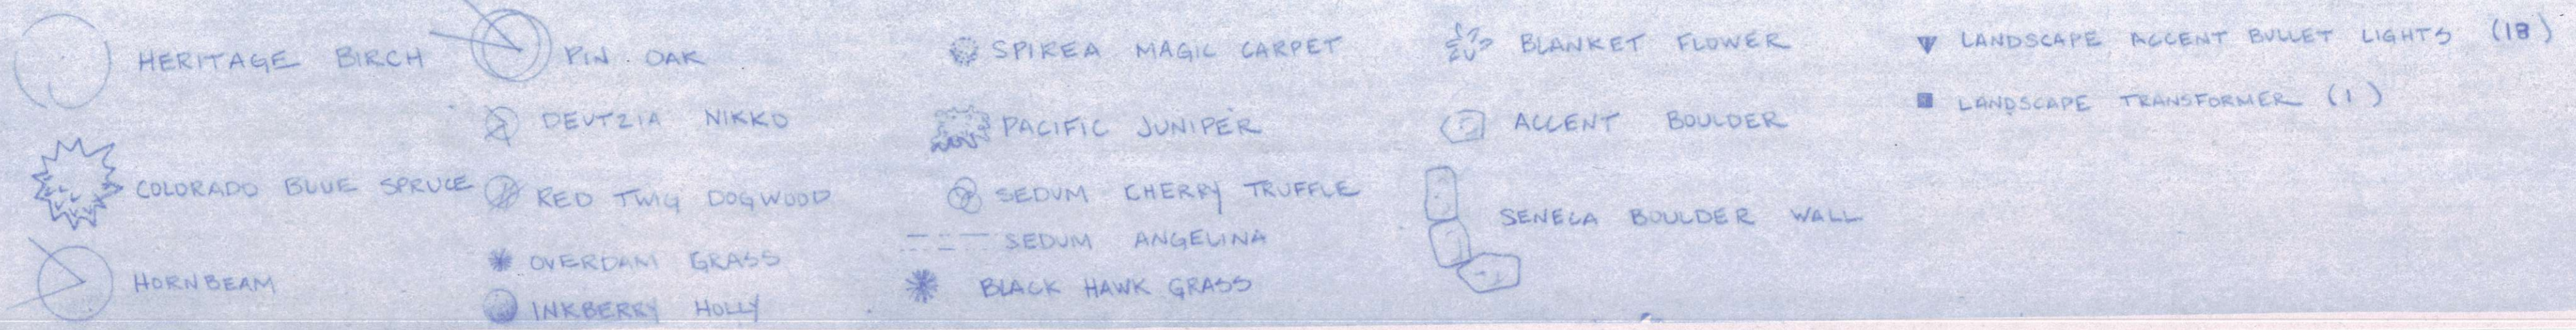 HERITAGE BIRCH
COLORADO BLUE SPRUCE
HORNBEAM
PIN OAK
DEUTZIA NIKKO
RED TWIG DOGWOOD
OVERDAM GRASS
INKBERRY HOLLY
SPIREA MAGIC CARPET
PACIFIC JUNIPER
SEDUM CHERRY TRUFFLE
SEDUM ANGELINA
BLACK HAWK GRASS
BLANKET FLOWER
ACCENT BOULDER
SENECA BOULDER WALL
LANDSCAPE ACCENT BULLET LIGHTS (18)
LANDSCAPE TRANSFORMER (1)